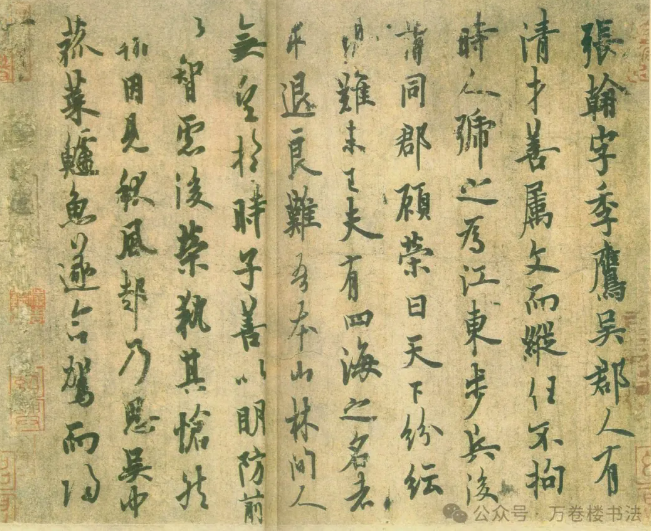 張翰字季鷹吳郡人有
清才善属文而縱任不拘
時人號之為江東步兵後
謂同郡顧榮曰天下紛紜
難未已夫有四海之名者
求退良難吾本山林間人
無望於時子善以明防前
以智慮後榮執其愴然
翰因見秋風起乃思吳中
菰菜鱸魚遂命駕而歸
公众号·万卷楼书法